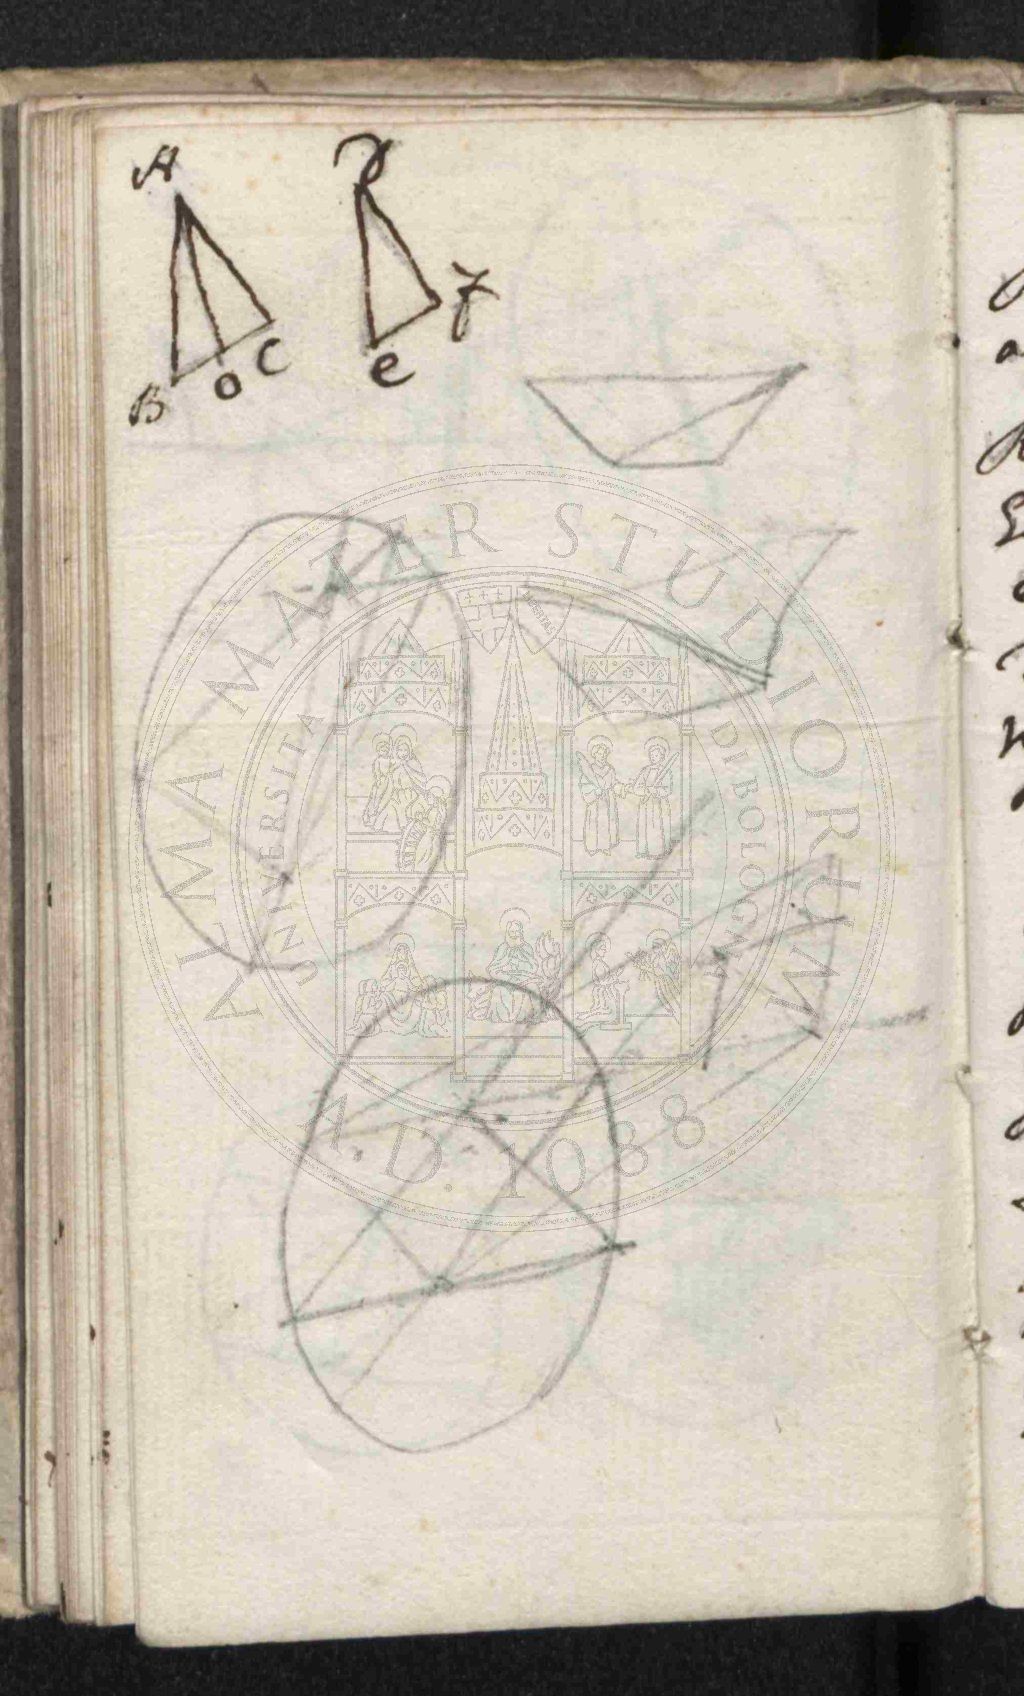 A
D
f
B
O
C
e
ALMA MATER STUDIORUM
UNIVERSITÀ DI BOLOGNA
A.D. 1088